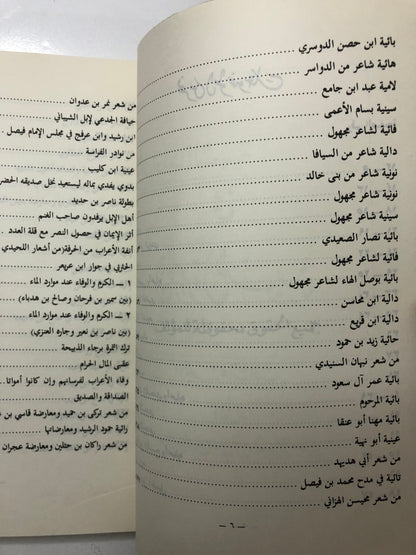 بائية ابن حصن الدوسري
هائية شاعر من الدواسر
لامية عبد ابن جامع
سينية بسام الأعمى
فائية لشاعر مجهول
دالية شاعر من السيافا
نونية شاعر من بنى خالد
نونية شاعر مجهول
سينية شاعر مجهول
بائية نصار الصعيدي
فائية لشاعر مجهول
بائية بوصل الهاء لشاعر مجهول
دالية ابن محاسن
دالية ابن قريع
حائية زيد بن حمود
من شعر نبهان السنيدي
بائية عمر آل سعود
بائية المرحوم
بائية مهنا أبو عنقا
عينية أبو نهية
من شعر أبي هديهد
تائية في مدح محمد بن فيصل
من شعر محيسن الهزاني
— ٦ —
من شعر نمر بن عدوان
حيافة الجدعي لإبل الشيباني
ابن رشيد وابن عرفج في مجلس الإمام فيصل
من نوادر الفراسة
عينية ابن كليب
بدوي يفدي بماله ليستعيد نخل صديقه الحضر
بطولة ناصر بن حديد
أهل الإبل يرفدون صاحب الغنم
أثر الإيمان في حصول النصر مع قلة العدد
أنفة الأعراب من الحرفة(من أشعار اللحيدي
الخنزي في جوار ابن عريعر
١ — الكرم والوفاء عند موارد الماء
(بين سمير بن فرحان وصالح بن هدباء)
٢ — الكرم والوفاء عند موارد الماء
(بين ناصر بن نعير وجاره العنزي)
ترك الثمرة برجاء الذبيحة
عقبى المال الحرام
وفاء الأعراب لفرسانهم وإن كانوا أمواتا
الصداقة والصديق
من شعر تركى بن حميد ومعارضة قاسي بن
رائية حمود الرشيد ومعارضاتها
من شعر راكان بن حثلين ومعارضة عجران